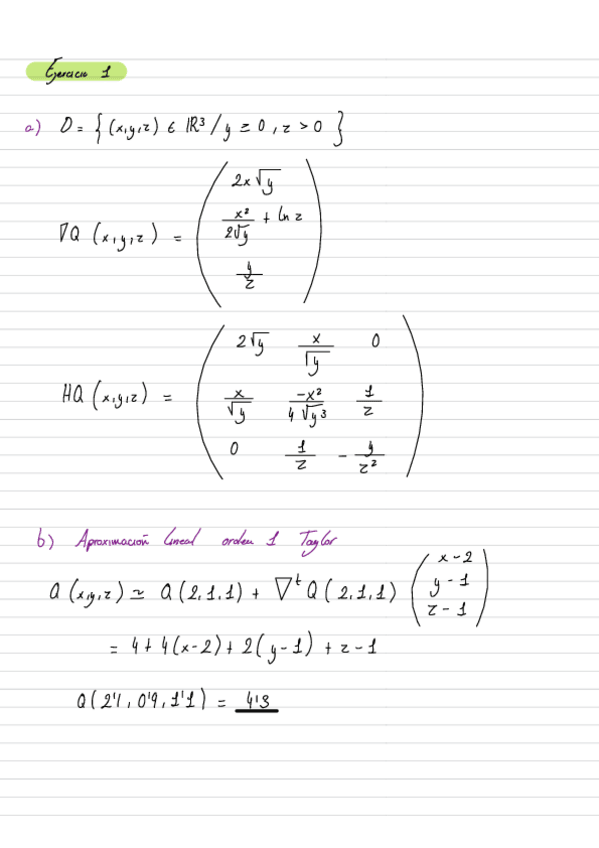 Ejercicio 1
a) D = { (x,y,z) ∈ IR³ / y ≥ 0 , z > 0 }
∇Q (x,y,z) = ( 2x√y
x²/(2√y) + ln z
y/z )
HQ (x,y,z) = ( 2√y   x/√y   0
x/√y   -x²/(4√y³)   1/z
0   1/z   - y/z² )
b) Aproximación lineal orden 1 Taylor
Q (x,y,z) ≃ Q (2,1,1) + ∇ᵗ Q (2,1,1) ( x-2
y-1
z-1 )
= 4 + 4(x-2) + 2(y-1) + z-1
Q (2'1, 0'9, 1'1) = 4'3